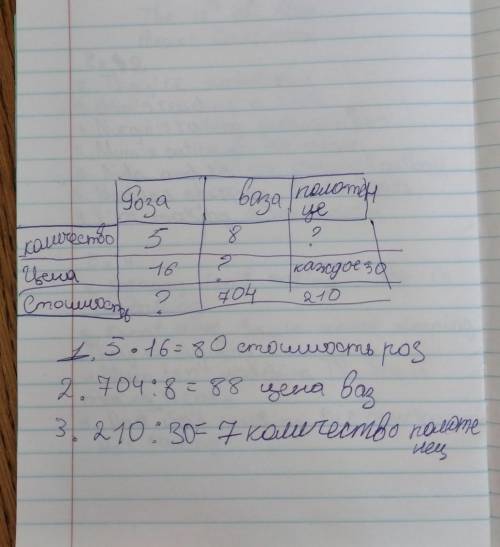 Роза ваза полотен
це
количество 5 8 ?
Цена 16 ? каждое 30
Стоимость ? 704 210
1. 5 · 16 = 80 стоимость роз
2. 704 : 8 = 88 цена ваз
3. 210 : 30 = 7 количество полоте
нец